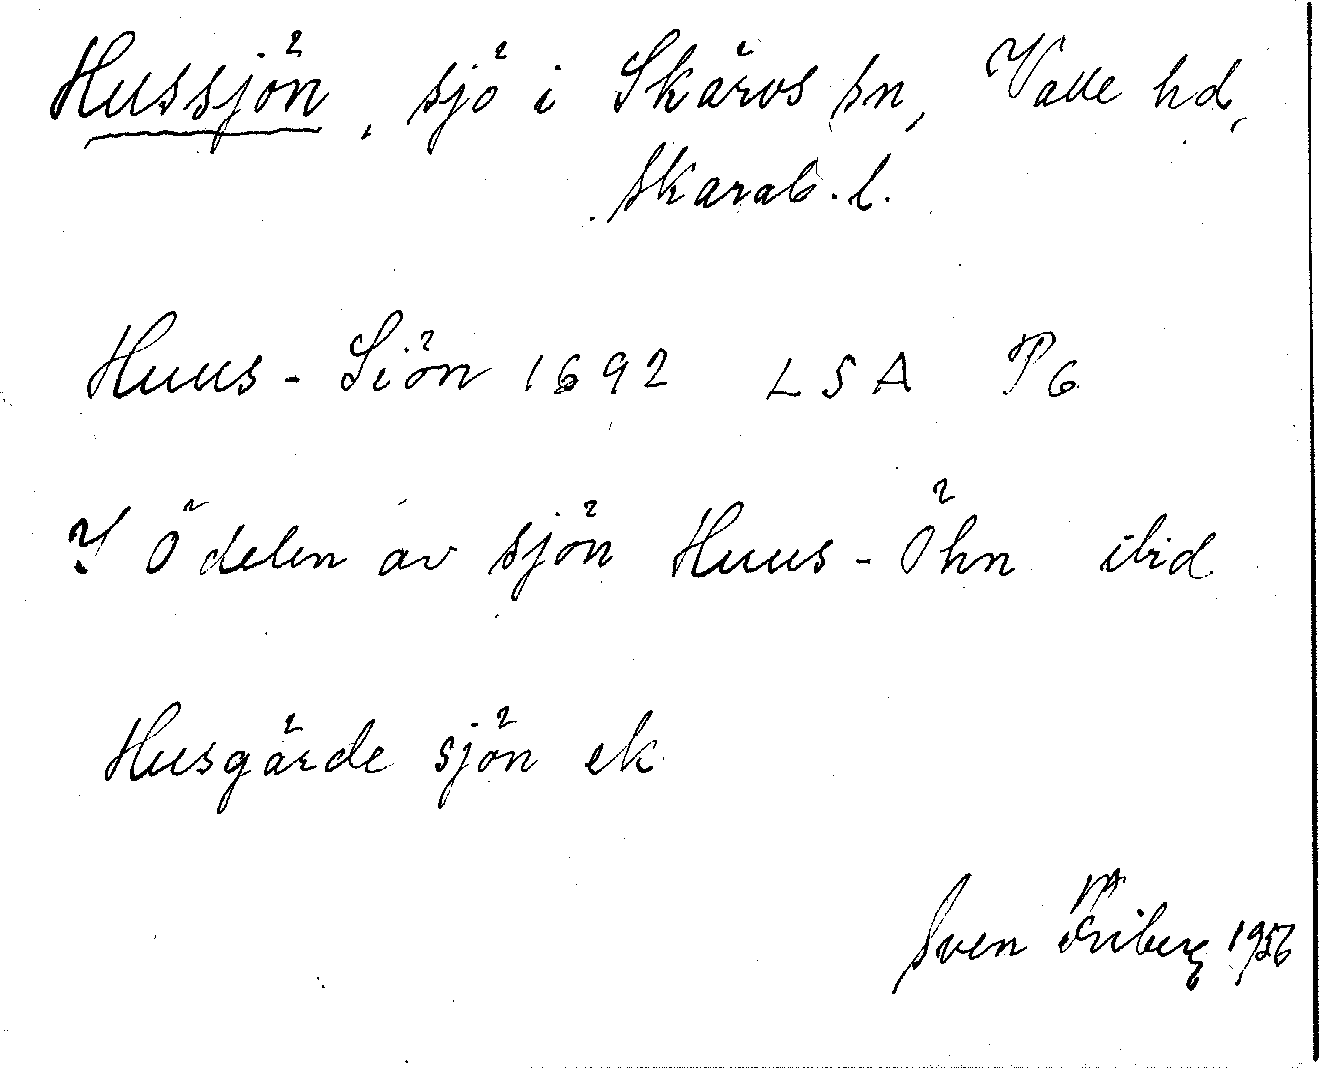 Hussjön, sjö i Skärvs sn, Valle hd,
Skarab. l.
Huus-Siön 1692 LSA P6
I ödelen av sjön Huus-Öhn ibid
Husgärde sjön ek
Sven Friberg 1956